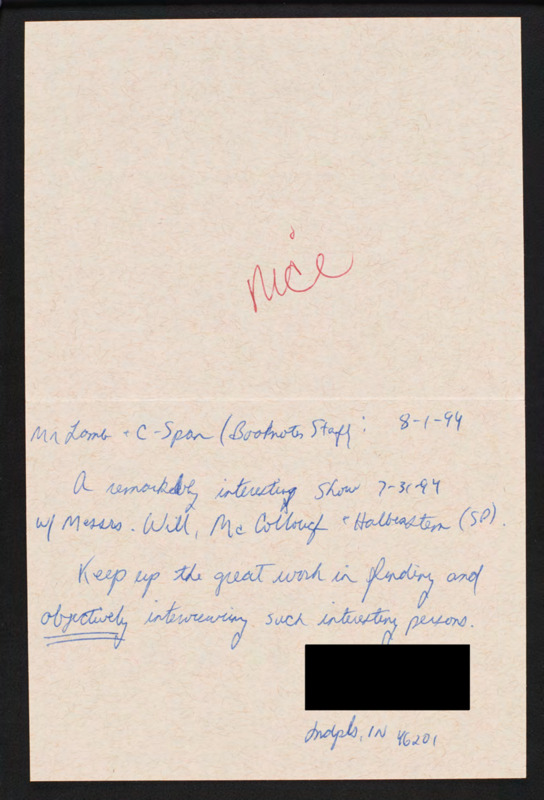 nice
Mr Lamb + C-Span (Booknotes Staff): 8-1-94
A remarkably interesting show 7-31-94
w/ Messrs. Will, McCollough + Halberstern (SP).
Keep up the great work in finding and
objectively interviewing such interesting persons.
Indpls, IN 46201